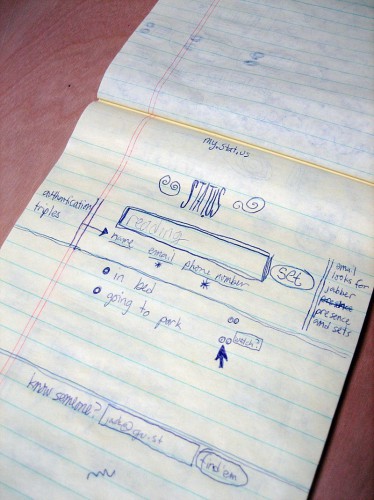 my.stat.us
STATUS
authentication
triples
reading
set
name email phone number
* *
email
looks for
jabber
presence
and sets
in bed
going to park
watch?
know someone?
find 'em